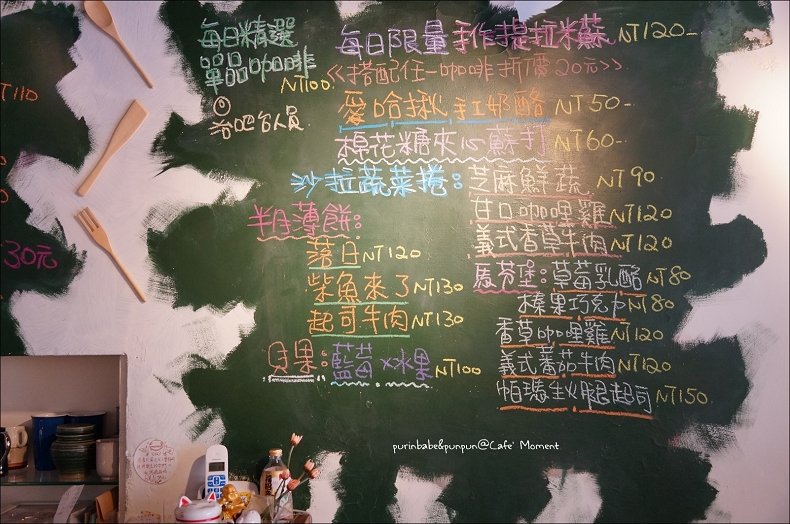 每日精選
單品咖啡
NT100
洽吧台人員
每日限量手作提拉米蘇 NT120-
<<搭配任一咖啡折價20元>>
愛哈揪手工奶酪 NT50-
棉花糖夾心蘇打 NT60-
沙拉蔬菜捲: 芝麻鮮蔬 NT90
甘口咖哩雞 NT120
義式香草牛肉 NT120
半月薄餅:
落日 NT120
柴魚來了 NT130
起司牛肉 NT130
貝果: 藍莓×水果 NT100
馬芬堡: 草莓乳酪 NT80
榛果巧克力 NT80
香草咖哩雞 NT120
義式番茄牛肉 NT120
帕瑪生火腿起司 NT150
T110
30元
purinbabe&punpun@Cafe' Moment